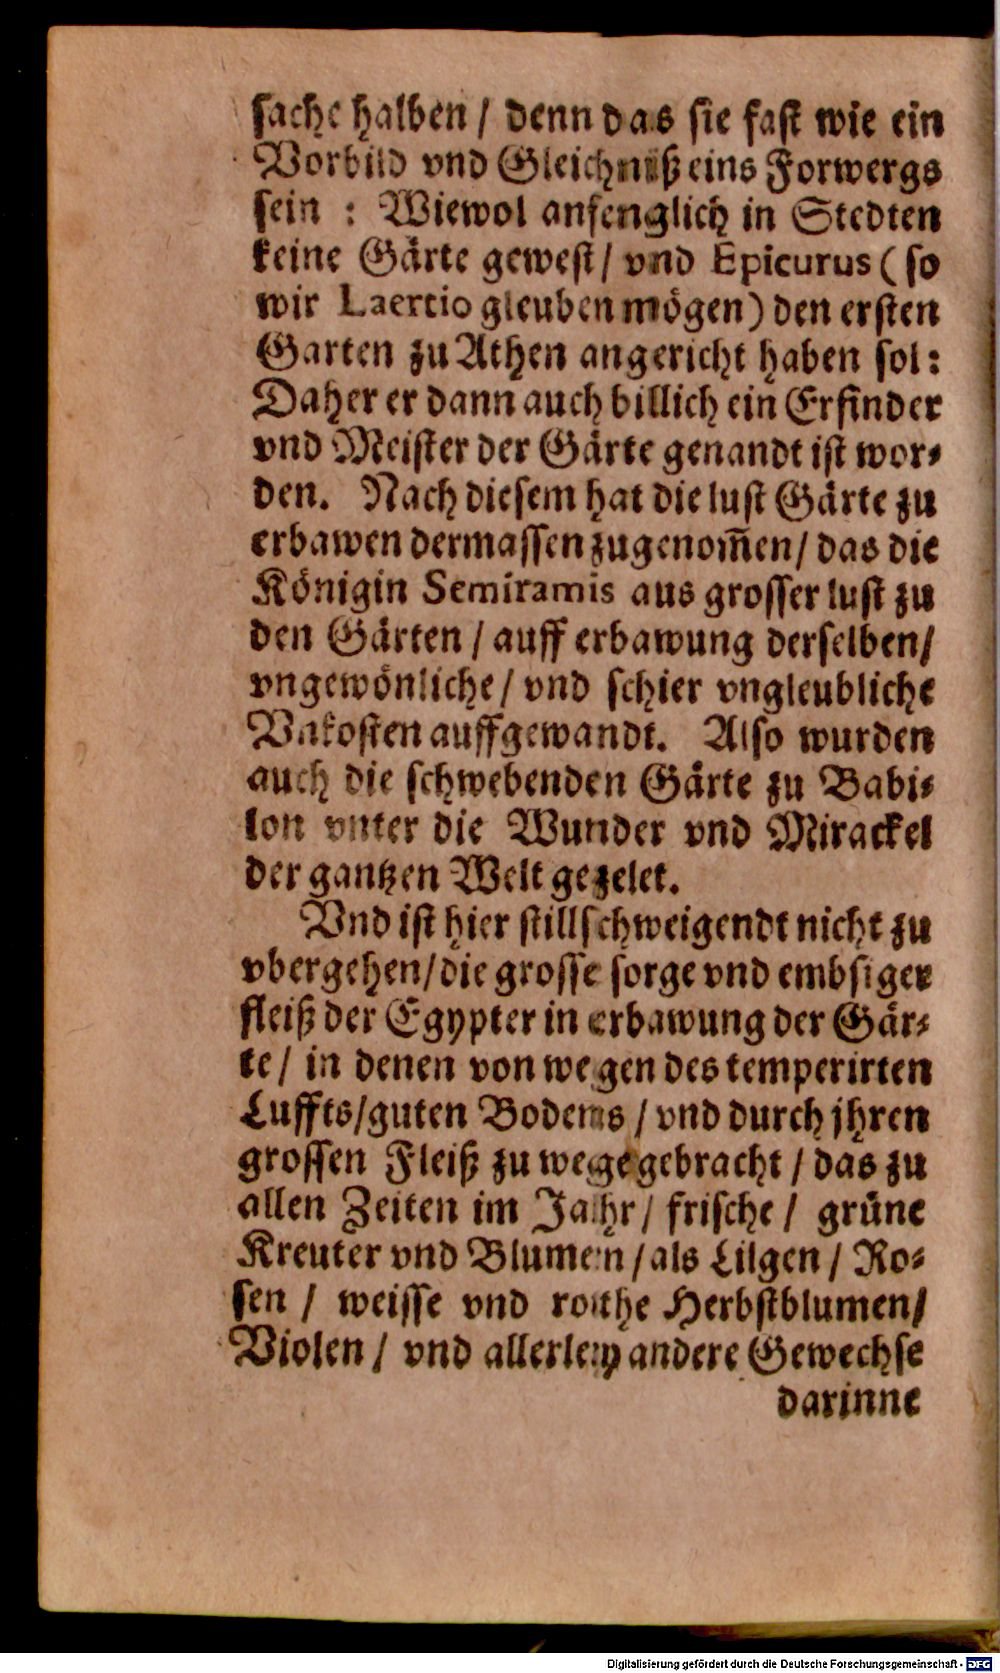 sache halben / denn das sie fast wie ein
Vorbild vnd Gleichnüß eins Forwergs
sein : Wiewol anfenglich in Stedten
keine Gärte gewest / vnd Epicurus ( so
wir Laertio gleuben mögen ) den ersten
Garten zu Athen angericht haben sol :
Daher er dann auch billich ein Erfinder
vnd Meister der Gärte genandt ist wor⸗
den. Nach diesem hat die lust Gärte zu
erbawen dermassen zugenom̃en / das die
Königin Semiramis aus grosser lust zu
den Gärten / auff erbawung derselben /
vngewönliche / vnd schier vngleubliche
Vnkosten auffgewandt. Also wurden
auch die schwebenden Gärte zu Babi⸗
lon vnter die Wunder vnd Mirackel
der gantzen Welt gezelet.
Vnd ist hier stillschweigendt nicht zu
vbergehen / die grosse sorge vnd embsiger
fleiß der Egypter in erbawung der Gär⸗
te / in denen von wegen des temperirten
Luffts / guten Bodems / vnd durch jhren
grossen Fleiß zu wege gebracht / das zu
allen Zeiten im Jahr / frische / grüne
Kreuter vnd Blumen / als Lilgen / Ro⸗
sen / weisse vnd rothe Herbstblumen /
Violen / vnd allerley andere Gewechse
darinne
Digitalisierung gefördert durch die Deutsche Forschungsgemeinschaft - DFG